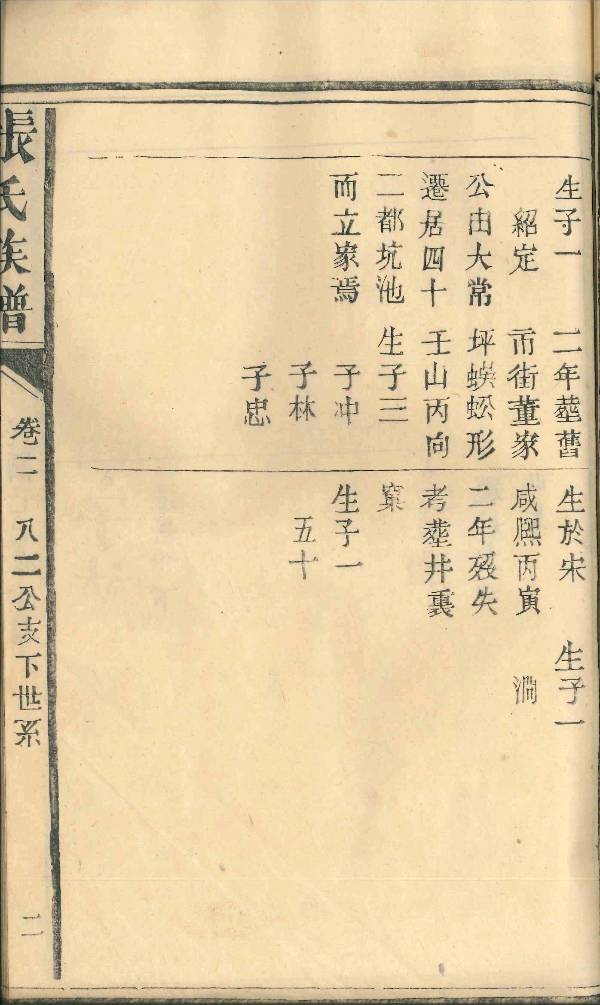 生子一
紹定
公由大常
遷居四十
二都坑池
而立家焉
二年塟舊
市街董家
坪蜈蚣形
壬山丙向
生子三
子冲
子林
子忠
生於宋
咸熈丙寅
二年殁失
考塟井裏
窠
生子一
五十
生子一
澗
張氏族譜
卷二
八二公支下世系
二